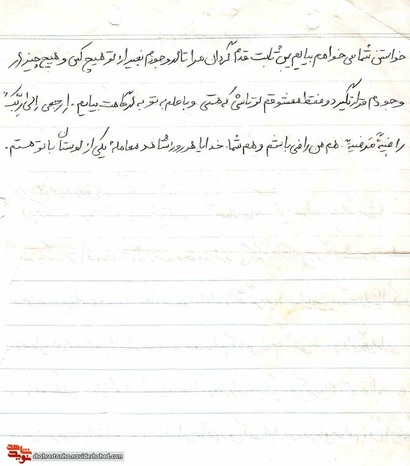 خواستن شما می خواهم بیایم پس ثابت قدم گردان مرا تا در وجودم بغیر از تو هیچ کس و هیچ چیز در
وجودم قرار نگیرد و فقط معشوقم تو باشی که هستی و با علم به تو به درگاهت بیایم. ارجعی الی ربک
راضیة مرضیة هم من راضی باشم و هم شما. خدایا هر روز شاهد معامله یکی از دوستان با تو هستم.
shohrestanha.navideshahed.com